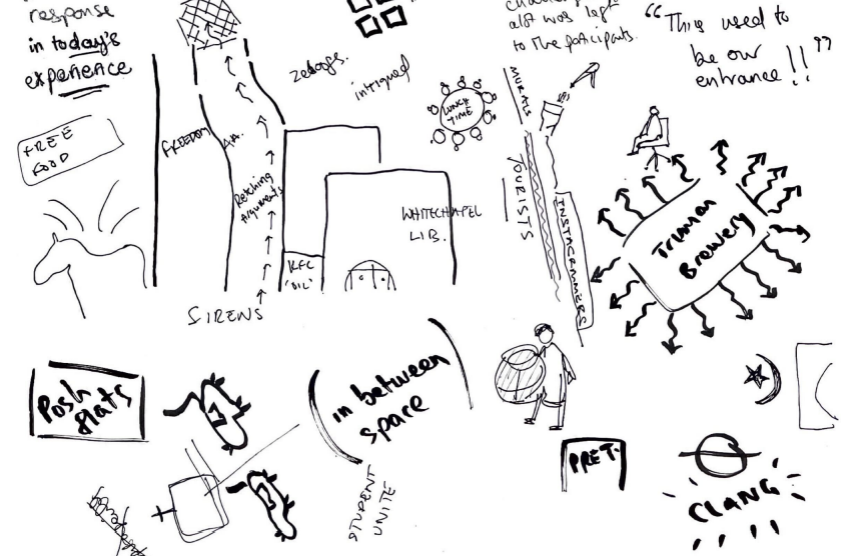 response
in today's
experience
FREE
FOOD
FREEDOM
Retching
Arguments
SIRENS
KFC
'OIL'
WHITECHAPEL
LIB.
intrigued
LUNCH
TIME
to the participants.
MURALS
TOURISTS
INSTAGRAMMERS
"This used to
be our
entrance!!"
Truman
Brewery
Posh
flats
in between
space
STUDENT
UNITE
PRET.
CLANG